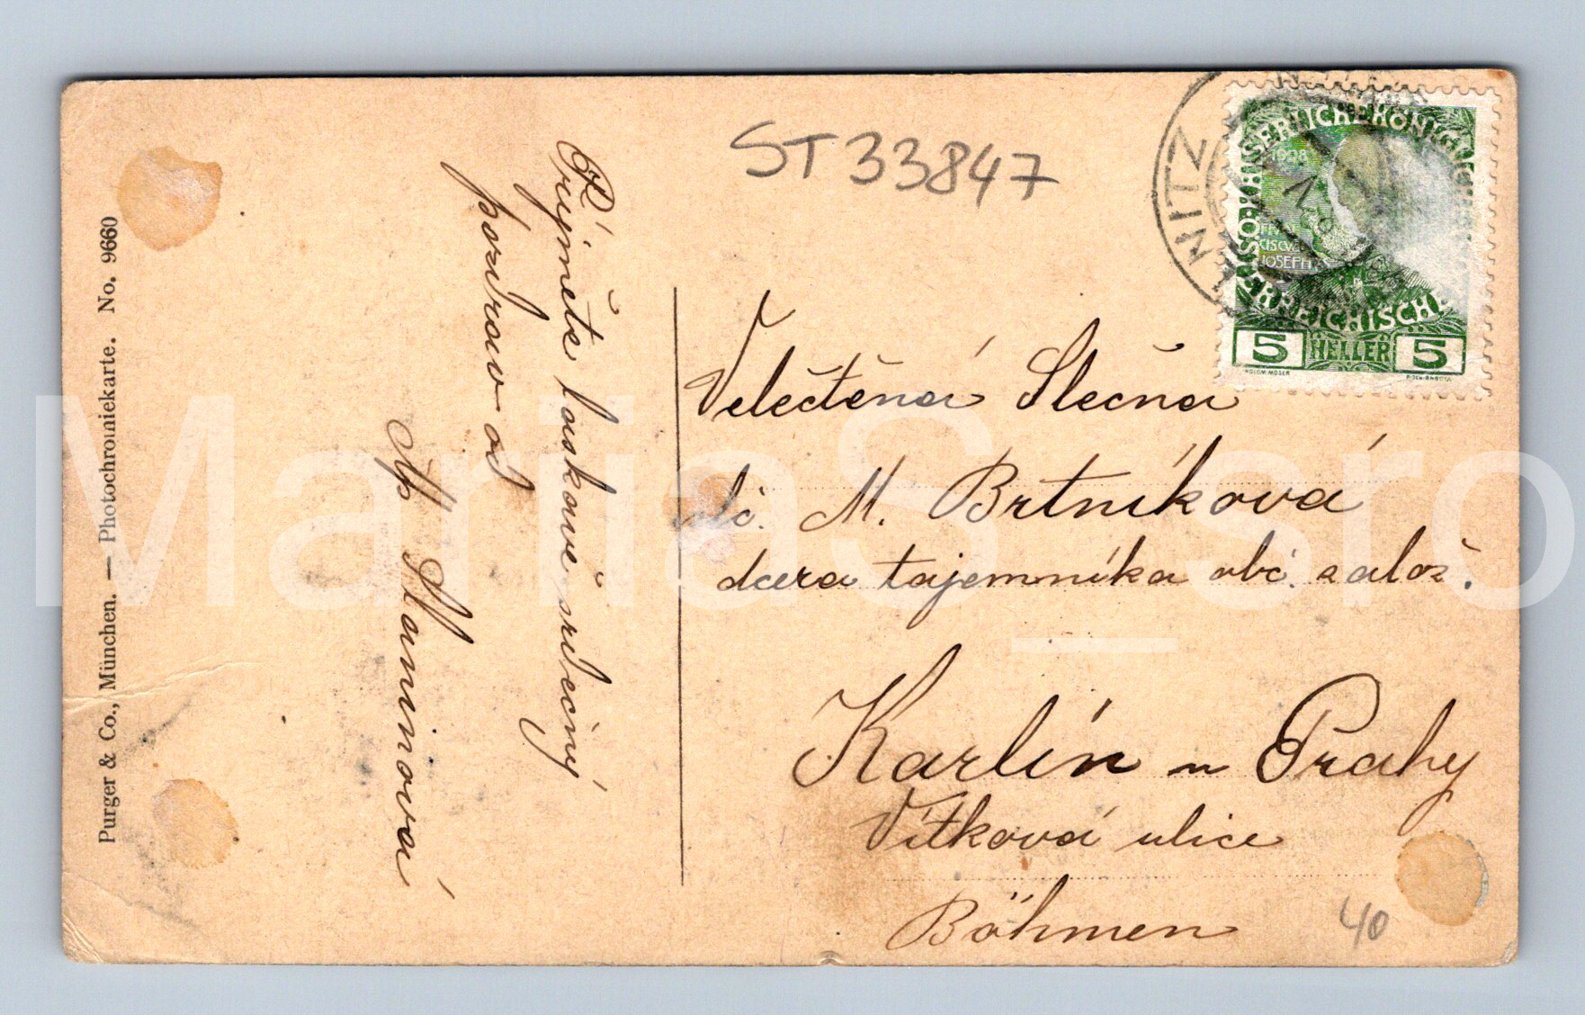 Purger & Co., München. — Photochromiekarte. No. 9660
Přijměte laskavě srdečný
pozdrav od
Slaninová
ST 33847
NITZ
KAISERLICHE KÖNIGLICHE
ÖSTERREICHISCHE
1908
FRANZ
JOSEPH
5 HELLER 5
Velectěná Slečna
sl. M. Brtníková
dcera tajemníka obč. založ.
Karlín u Prahy
Vítková ulice
Böhmen
40
MarijaS_sro